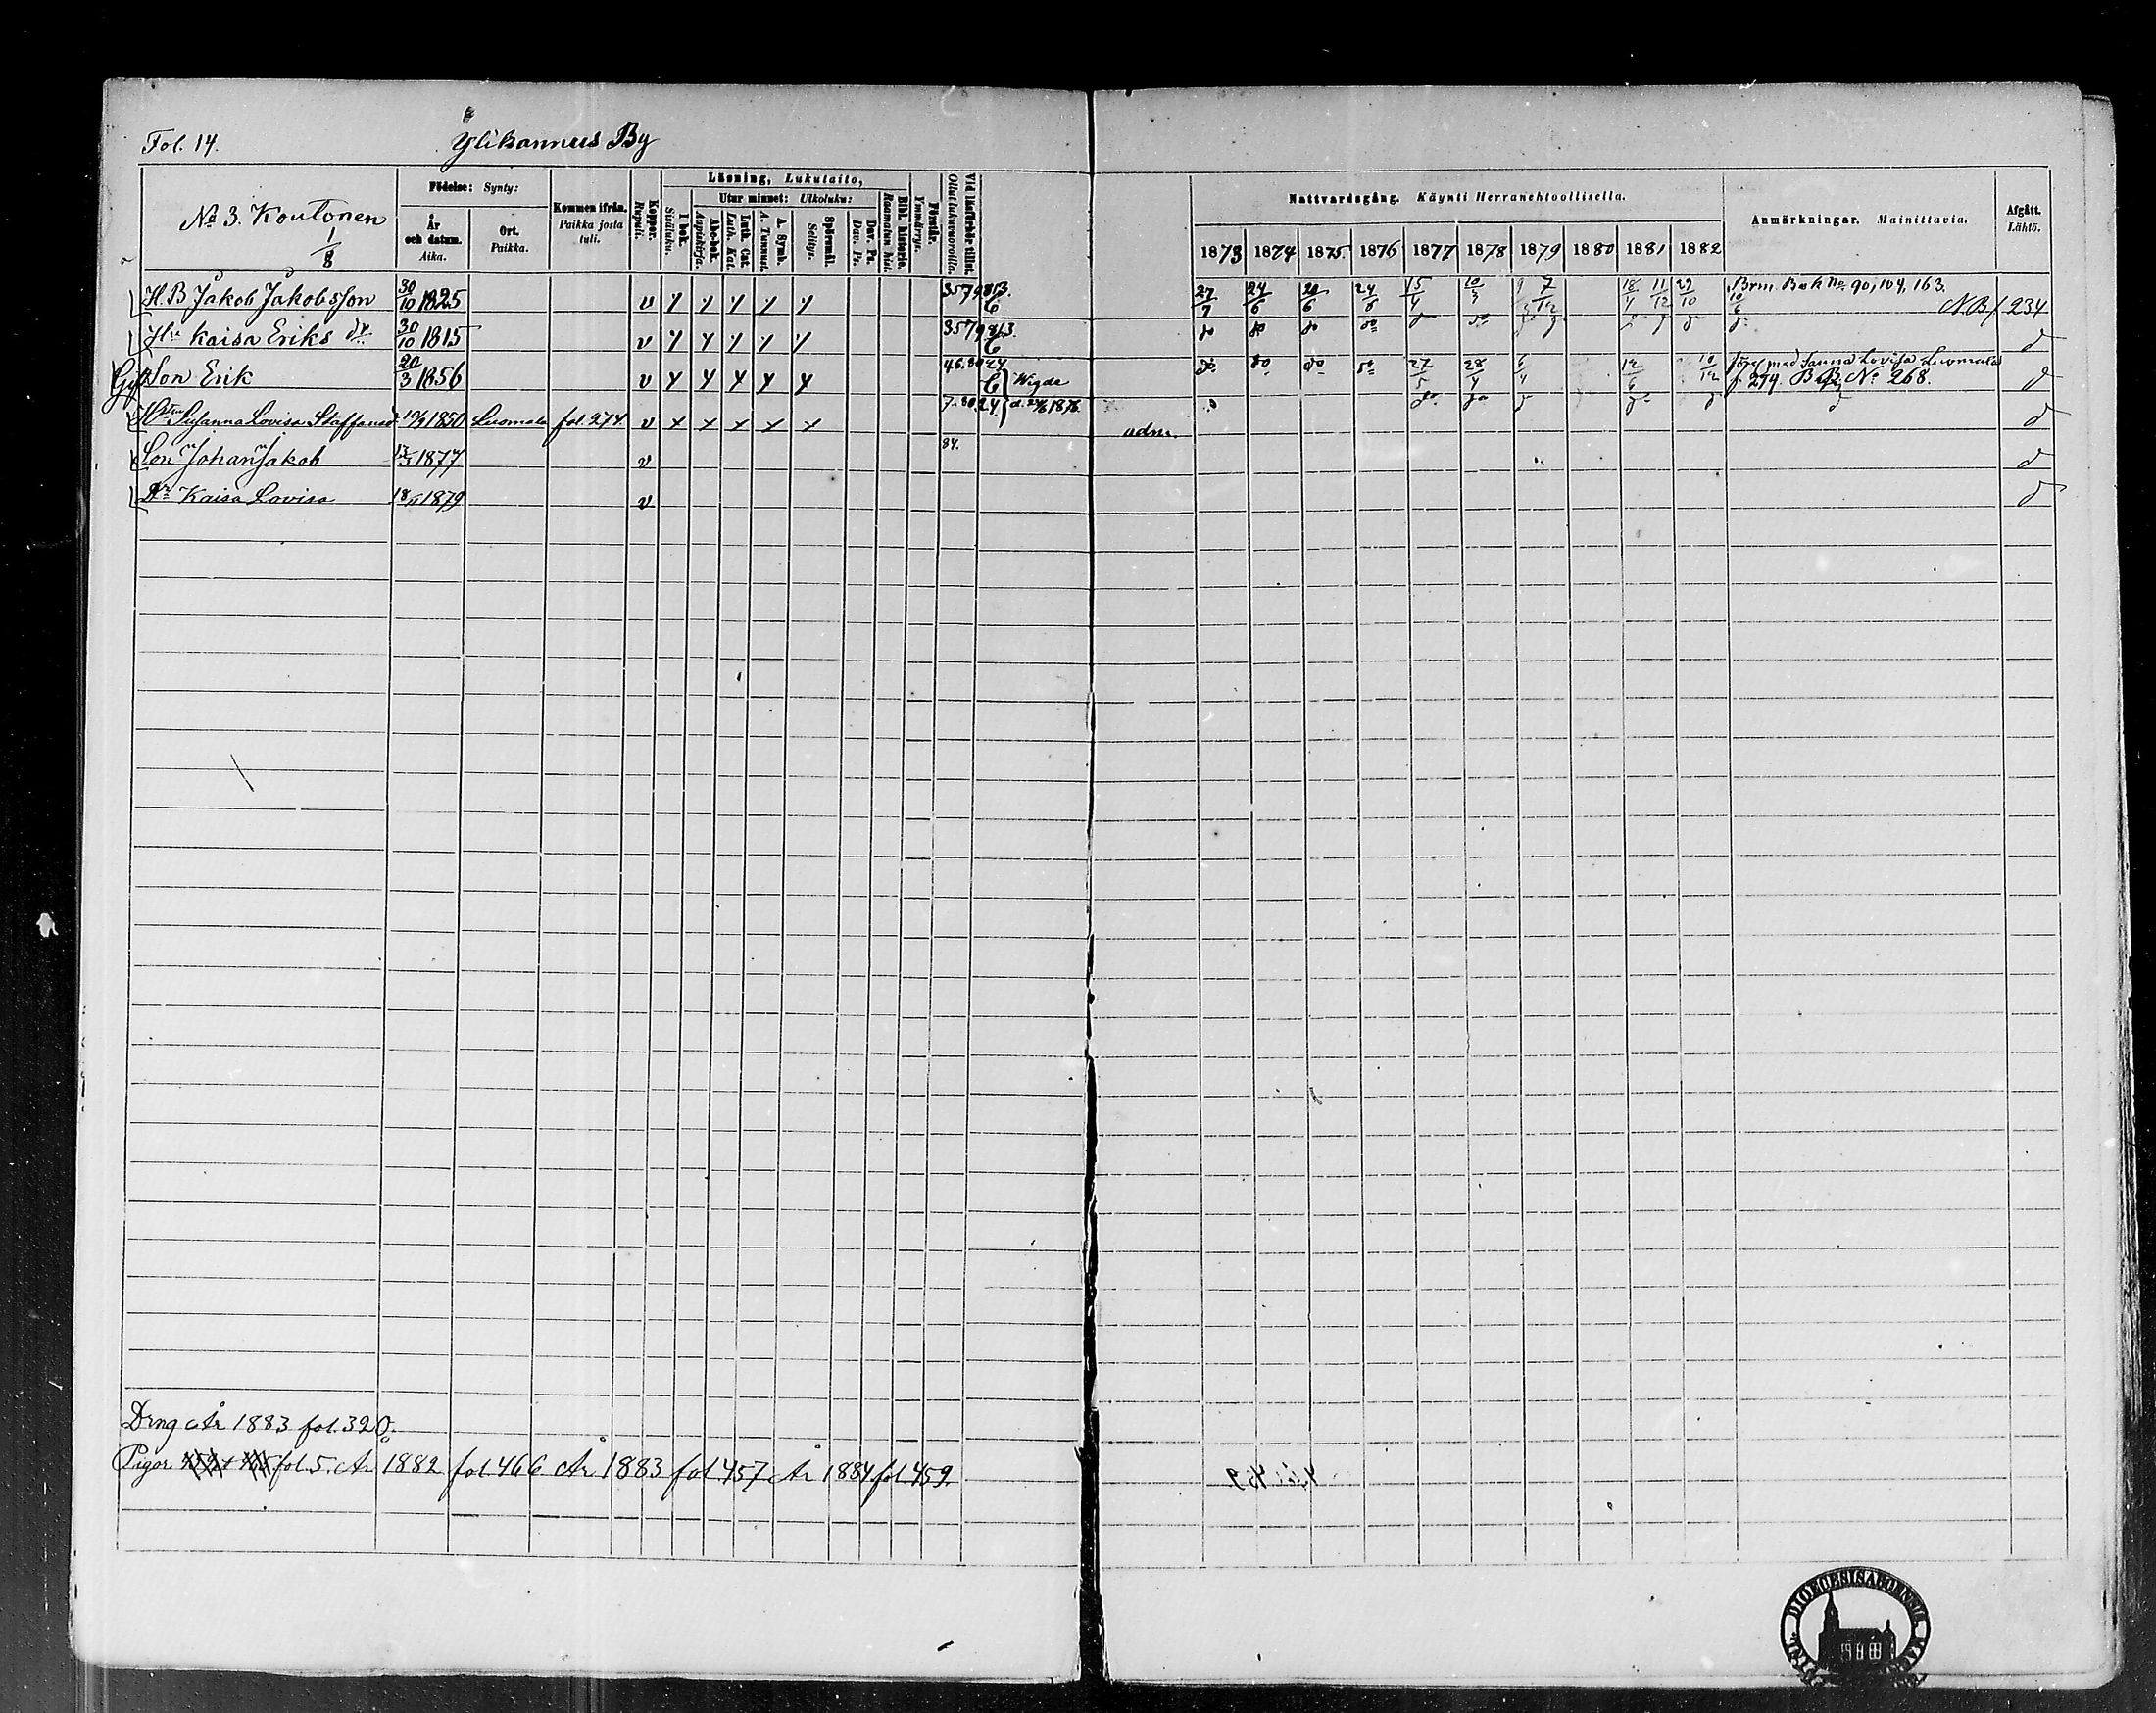 Fol. 14. Ylikannus By
Nº 3. Koutonen
1/8
Födelse: Synty:
År och datum. Aika.
Ort. Paikka.
Kommen ifrån. Paikka josta tuli.
Koppor. Rupuli.
Läsning, Lukutaito,
I bok. Sisäluku.
Utur minnet: Ulkoluku:
Abc-bok. Aapiskirja.
Luth. Cat. Luth. Kat.
A. Symb. A. Tunnust.
Spörsmål. Selitys.
Dav. Ps. Dav. Ps.
Bibl. historie. Raamatun hist.
Förstår. Ymmärrys.
Vid läsförhör tillst. Ollut lukuvuorolla.
Nattvardsgång. Käynti Herranehtoollisella.
1873 1874 1875. 1876 1877 1878 1879 1880 1881 1882
Anmärkningar. Mainittavia.
Afgått. Lähtö.
H. B Jakob Jakobsson 30/10 1825 v 3579813. 6 27/7 24/6 20/6 24/6 15/4 7/12 18/4 11/12 29/10 Brm. Bok No. 90, 104, 163. 10/6 N.B/ 234
Hu Kaisa Eriks dr 30/10 1815 v 3579813. 6 do do do do
Gift Son Erik 20/3 1856 v 46.8024 6 Wigde do do do do 27/5 28/4 12/6 10/12 med Sanna Lovisa Luomala
f. 274. B B No 268.
Susanna Lovisa Staffansd 1850 Luomala fol. 274. v 7.80.24. d. 24/6 1876. adm.
Son Johan Jakob 1877 v 84.
Dr Kaisa Lovisa 1879 v
Drng År 1883 fol. 320.
Pigor fol 5. År 1882 fol 466 År 1883 fol 457 År 1884 fol 459.